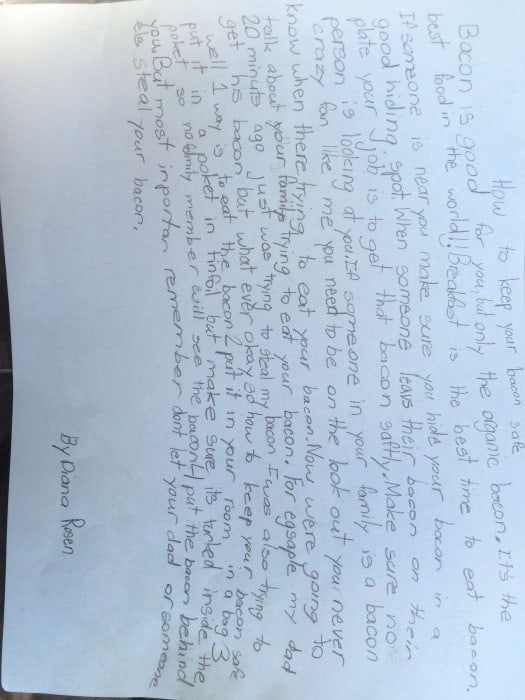 How to keep your bacon safe
Bacon is good for you, but only the organic bacon. It's the
best food in the world!! Breakfast is the best time to eat bacon.
If someone is near you make sure you hide your bacon in a
good hiding spot. When someone leavs their bacon on their
plate your job is to get that bacon saftly. Make sure no
person is looking at you. If someone in your family is a bacon
crazy fan like me you need to be on the look out you never
know when there trying to eat your bacon. Now were going to
talk about your family trying to eat your bacon. For egsaple my dad
20 minuts ago Just was trying to steal my bacon I was also trying to
get his bacon but what ever okay so how to keep your bacon safe
well 1 way is to eat the bacon 2 put it in your room in a bag 3
put it in a poket in tinfoil but make sure its turked inside the
poket so no family member will see the bacon 4 put the bacon behind
you. But most inportan remember dont let your dad or someone
els steal your bacon.
By Diana Rosen